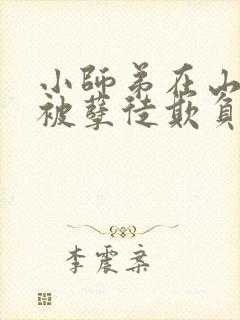 小師弟在山
被孽徒欺負
李震寀